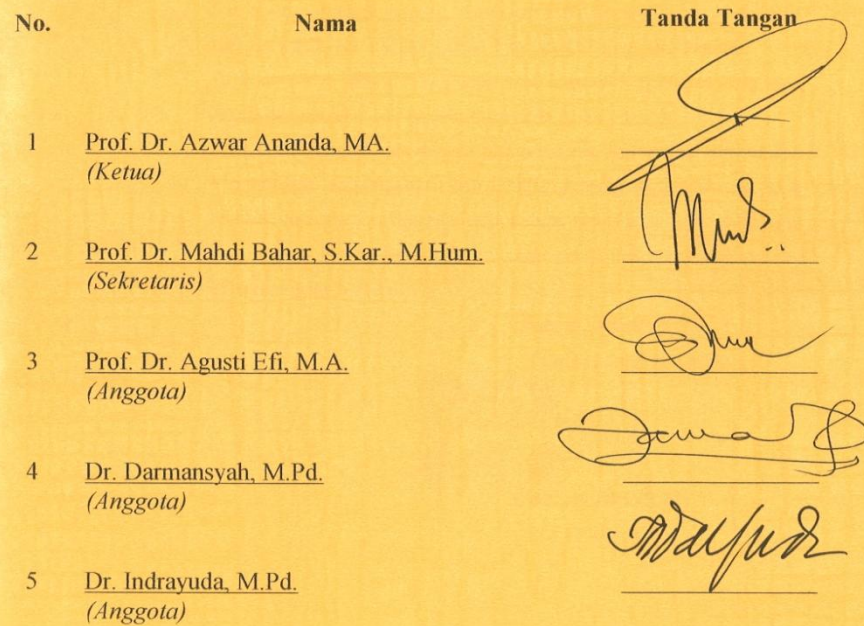 No. Nama Tanda Tangan
1 Prof. Dr. Azwar Ananda, MA.
(Ketua)
2 Prof. Dr. Mahdi Bahar, S.Kar., M.Hum.
(Sekretaris)
3 Prof. Dr. Agusti Efi, M.A.
(Anggota)
4 Dr. Darmansyah, M.Pd.
(Anggota)
5 Dr. Indrayuda, M.Pd.
(Anggota)